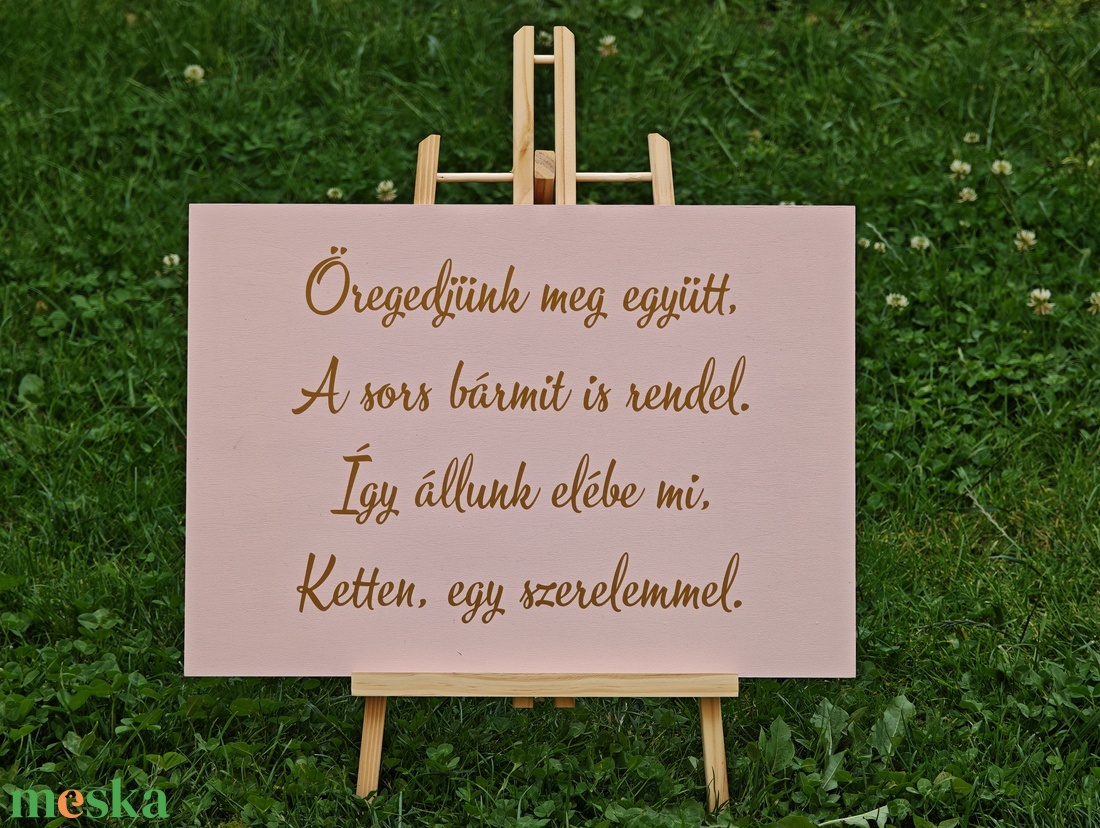 Öregedjünk meg együtt,
A sors bármit is rendel.
Így állunk elébe mi,
Ketten, egy szerelemmel.
meska